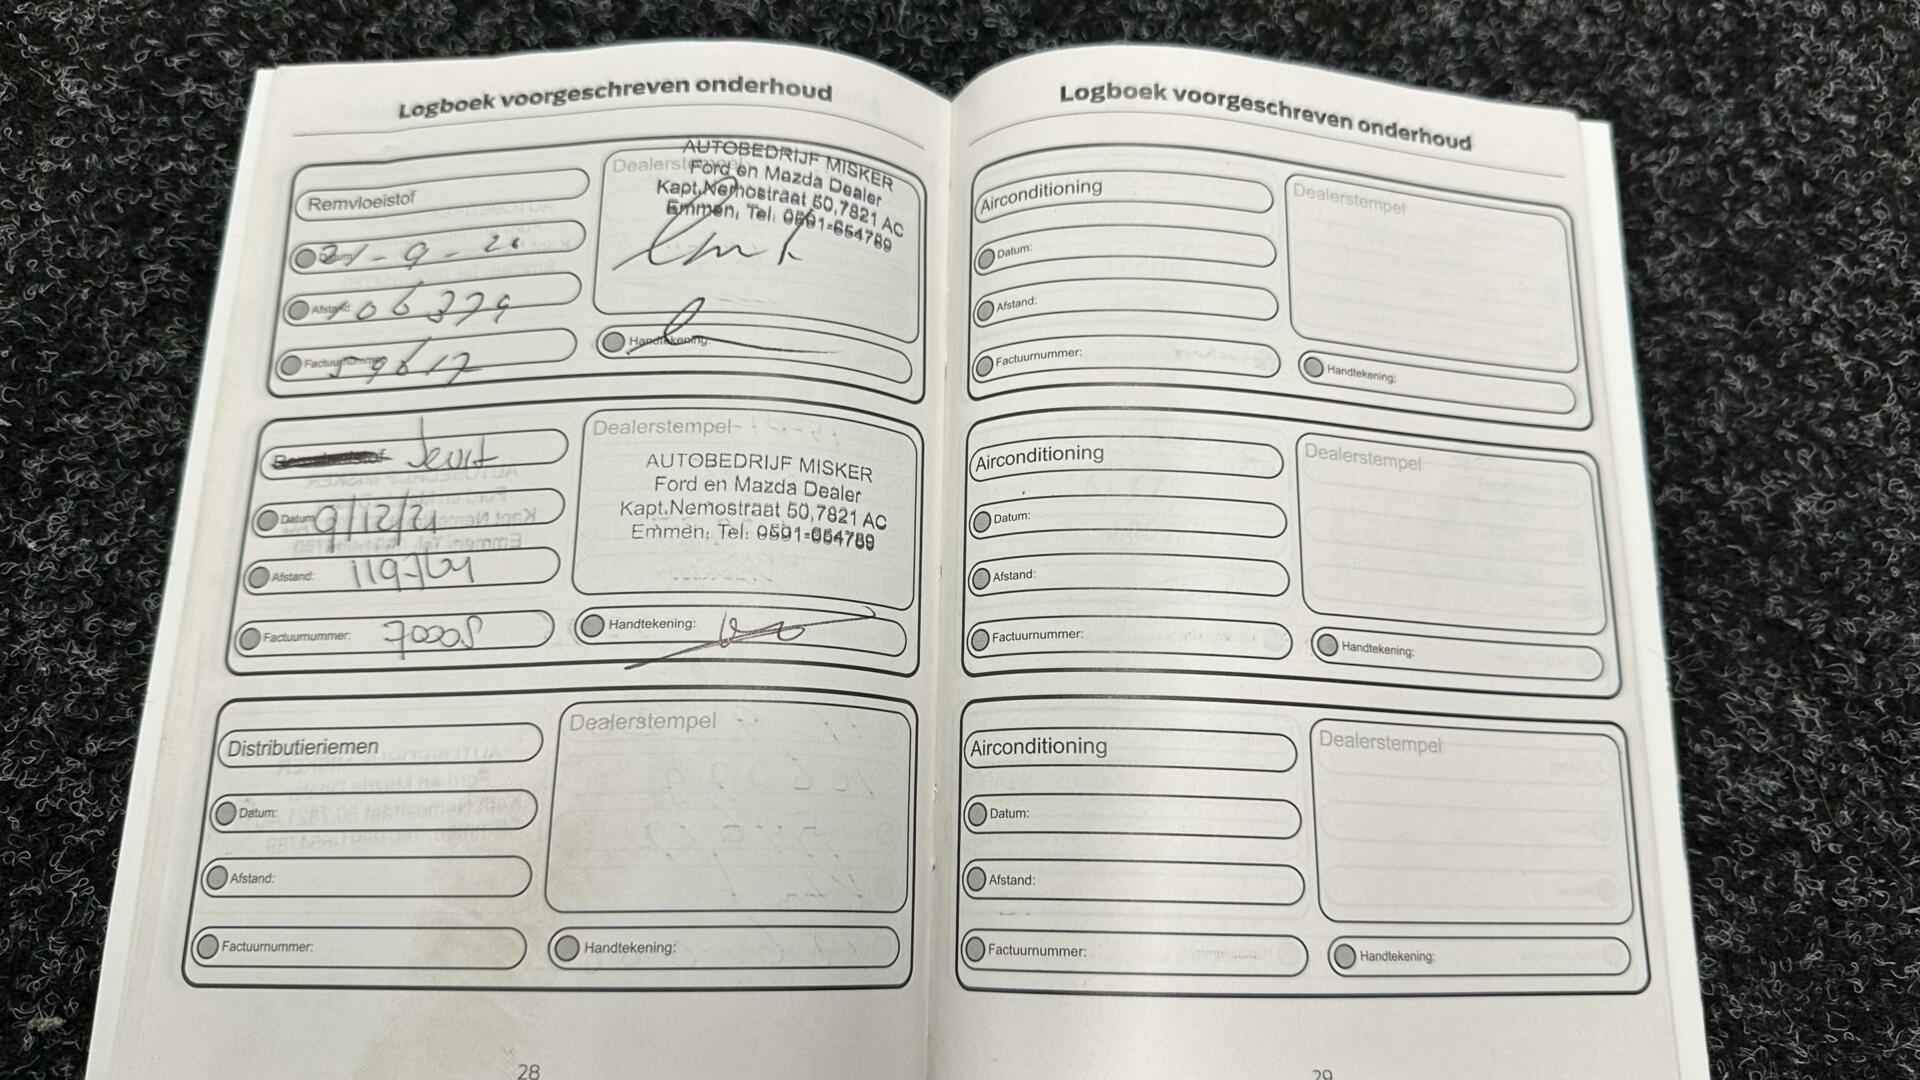 Logboek voorgeschreven onderhoud
Remvloeistof
Datum: 21-9-20
Afstand: 106379
Factuurnummer: 59617
Dealerstempel
AUTOBEDRIJF MISKER
Ford en Mazda Dealer
Kapt.Nemostraat 50,7821 AC
Emmen, Tel: 0591-654789
Handtekening:
Datum: 9/12/21
Afstand: 119764
Factuurnummer: 70005
Dealerstempel
AUTOBEDRIJF MISKER
Ford en Mazda Dealer
Kapt.Nemostraat 50,7821 AC
Emmen, Tel: 0591-654789
Handtekening:
Distributieriemen
Datum:
Afstand:
Factuurnummer:
Dealerstempel
Handtekening:
28
Logboek voorgeschreven onderhoud
Airconditioning
Datum:
Afstand:
Factuurnummer:
Dealerstempel
Handtekening:
Airconditioning
Datum:
Afstand:
Factuurnummer:
Dealerstempel
Handtekening:
Airconditioning
Datum:
Afstand:
Factuurnummer:
Dealerstempel
Handtekening:
29